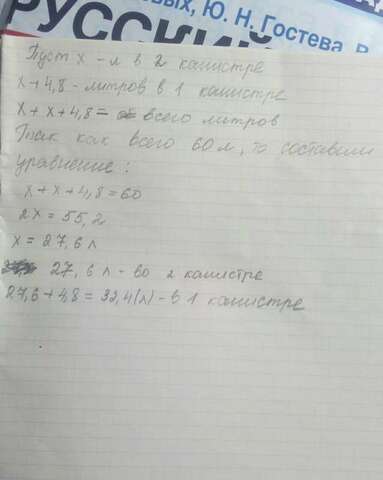 вых, Ю. Н. Гостева, В
РУССКИЙ
Пуст x - л в 2 канистре
x + 4,8 - литров в 1 канистре
x + x + 4,8 = всего литров
Так как всего 60 л, то составим
уравнение:
x + x + 4,8 = 60
2x = 55,2
x = 27,6 л
27,6 л - во 2 канистре
27,6 + 4,8 = 32,4 (л) - в 1 канистре